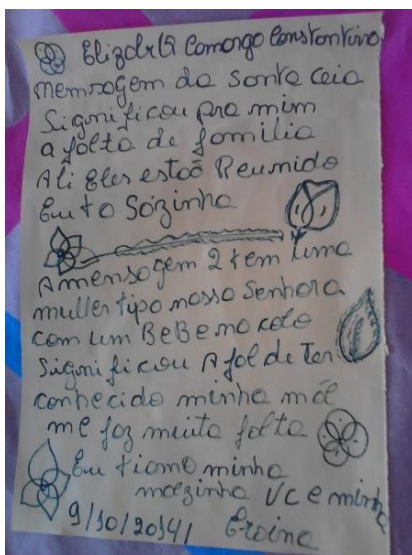 Elizabeta Camargo Constantino
Mensagem da santa ceia
Significou pra mim
a falta de familia
Ali Eles estaõ Reunido
Eu to Soizinha
A mensagem 2 tem uma
muller tipo nossa Senhora
com um BeBe no colo
Significou A fal de Ter
conhecido minha mãe
me faz muita falta
Eu tiamo minha
maezinha VC e minha
9/10/2014